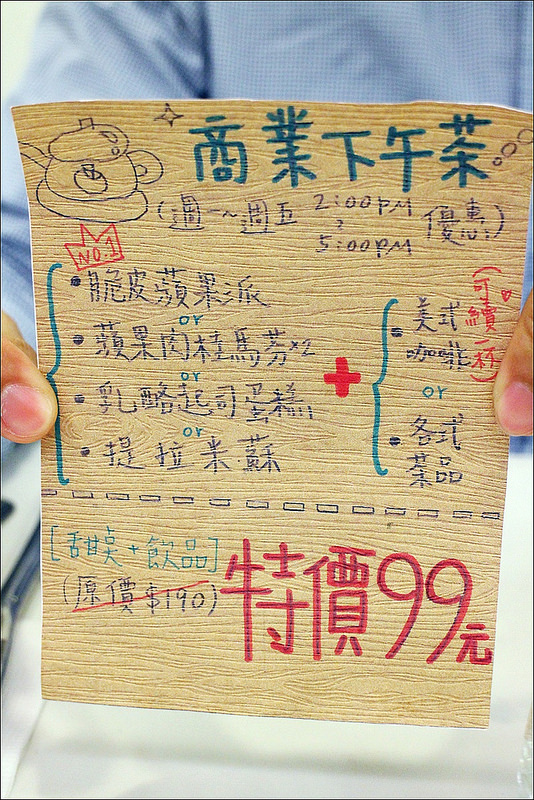 商業下午茶
(週一~週五 2:00PM ~ 5:00PM 優惠)
NO.1
•脆皮蘋果派
or
•蘋果肉桂馬芬×2
or
•乳酪起司蛋糕
or
•提拉米蘇
+
•美式咖啡
(可續一杯)
or
•各式茶品
[甜桌+飲品]
(原價$190)
特價99元